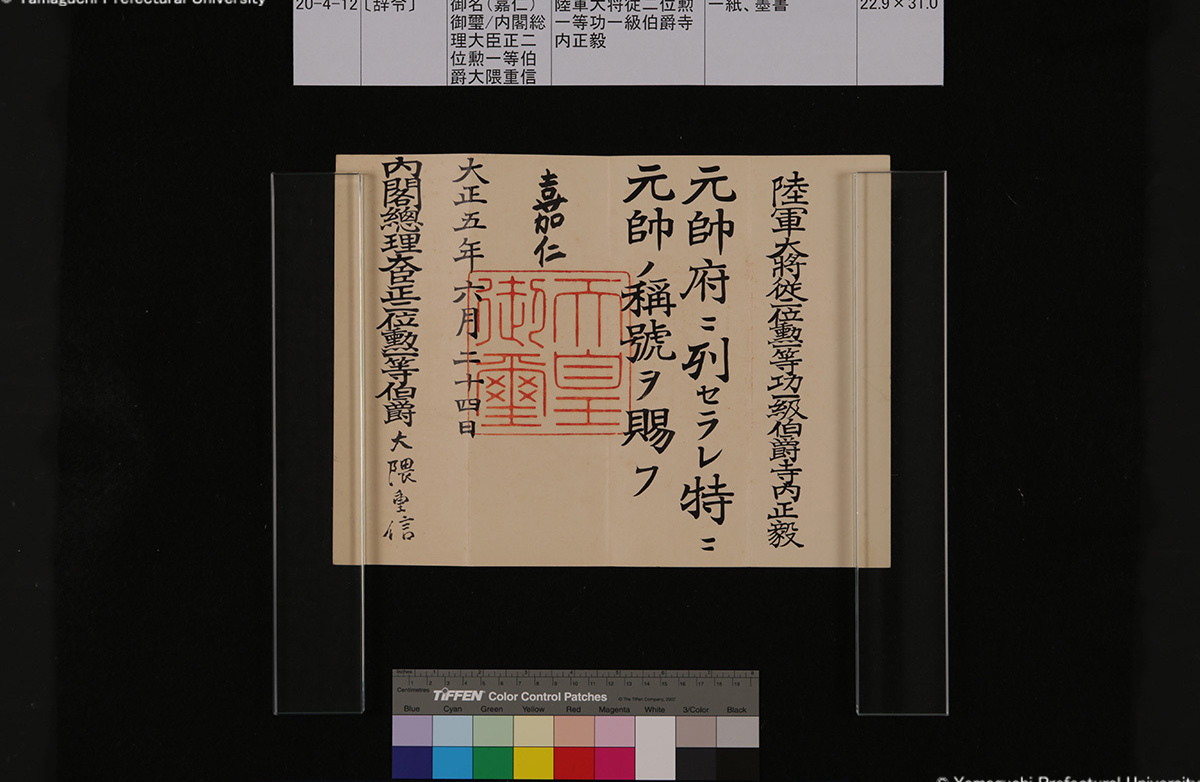 © Yamaguchi Prefectural University
20-4-12
〔辞令〕
御名(嘉仁)
御璽/内閣総
理大臣正二
位勲一等伯
爵大隈重信
陸軍大将従二位勲
一等功一級伯爵寺
内正毅
一紙、墨書
22.9×31.0
陸軍大將從二位勲一等功一級伯爵寺内正毅
元帥府ニ列セラレ特ニ
元帥ノ稱號ヲ賜フ
嘉仁
天皇
御璽
大正五年六月二十四日
内閣總理大臣正二位勲一等伯爵大隈重信
Inches
1 2 3 4 5 6 7 8
1 2 3 4 5 6 7 8 9 10 11 12 13 14 15 16 17 18 19
Centimetres
TIFFEN Color Control Patches
© The Tiffen Company, 2007
Blue Cyan Green Yellow Red Magenta White 3/Color Black
© Yamaguchi Prefectural University